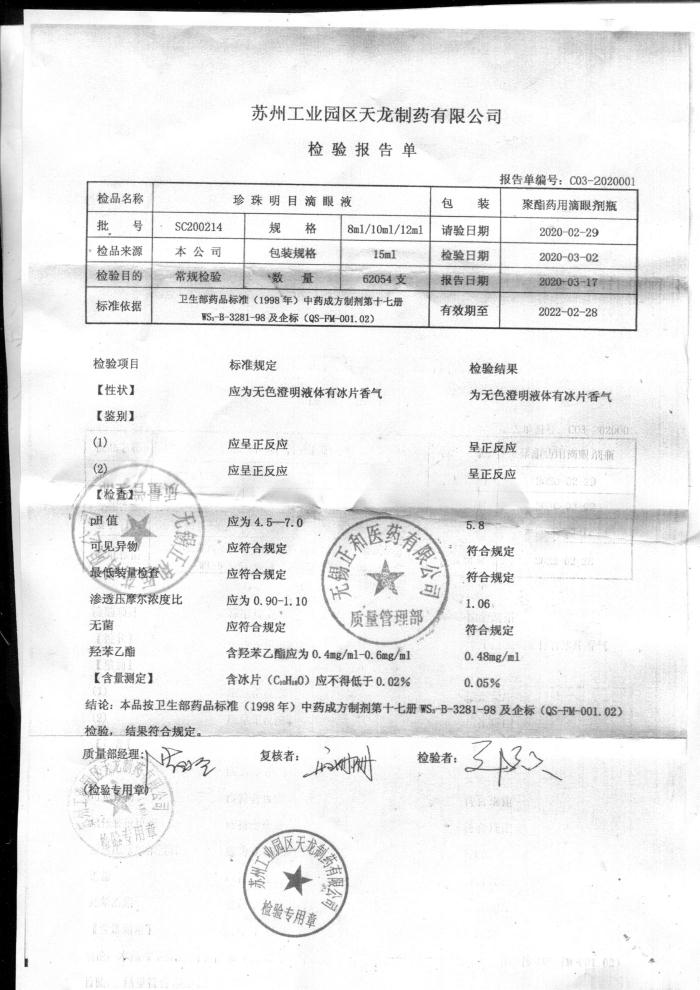 苏州工业园区天龙制药有限公司
检验报告单
报告单编号：C03-2020001
检品名称 珍珠明目滴眼液 包装 聚酯药用滴眼剂瓶
批号 SC200214 规格 8ml/10ml/12ml 请验日期 2020-02-29
检品来源 本公司 包装规格 15ml 检验日期 2020-03-02
检验目的 常规检验 数量 62054 支 报告日期 2020-03-17
标准依据 卫生部药品标准（1998 年）中药成方制剂第十七册 有效期至 2022-02-28
WS₃-B-3281-98 及企标（QS-FM-001.02）
检验项目 标准规定 检验结果
【性状】 应为无色澄明液体有冰片香气 为无色澄明液体有冰片香气
【鉴别】
(1) 应呈正反应 呈正反应
(2) 应呈正反应 呈正反应
【检查】
pH 值 应为 4.5—7.0 5.8
可见异物 应符合规定 符合规定
最低装量检查 应符合规定 符合规定
渗透压摩尔浓度比 应为 0.90-1.10 1.06
无菌 应符合规定 符合规定
羟苯乙酯 含羟苯乙酯应为 0.4mg/ml-0.6mg/ml 0.48mg/ml
【含量测定】 含冰片（C₁₀H₁₈O）应不得低于 0.02% 0.05%
结论：本品按卫生部药品标准（1998 年）中药成方制剂第十七册 WS₃-B-3281-98 及企标（QS-FM-001.02）
检验，结果符合规定。
质量部经理： 复核者： 检验者：
(检验专用章)
无锡正和医药有限公司
质量管理部
无锡正和医药有限公司
质量管理部
苏州工业园区天龙制药有限公司
检验专用章
苏州工业园区天龙制药有限公司
检验专用章